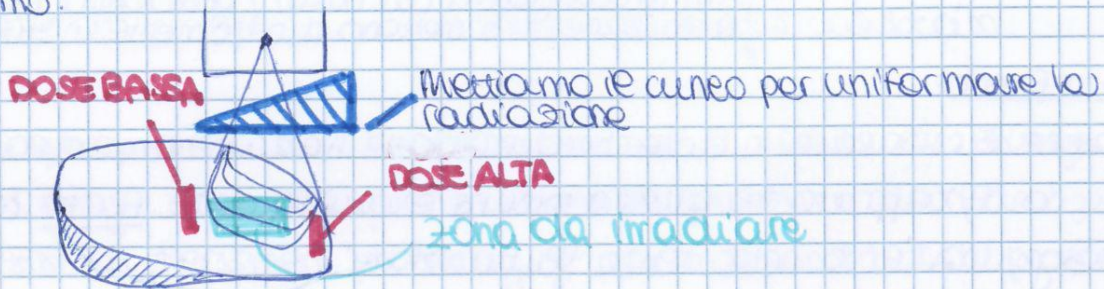 DOSE BASSA
Mettiamo il cuneo per uniformare la
radiazione
DOSE ALTA
zona da irradiare